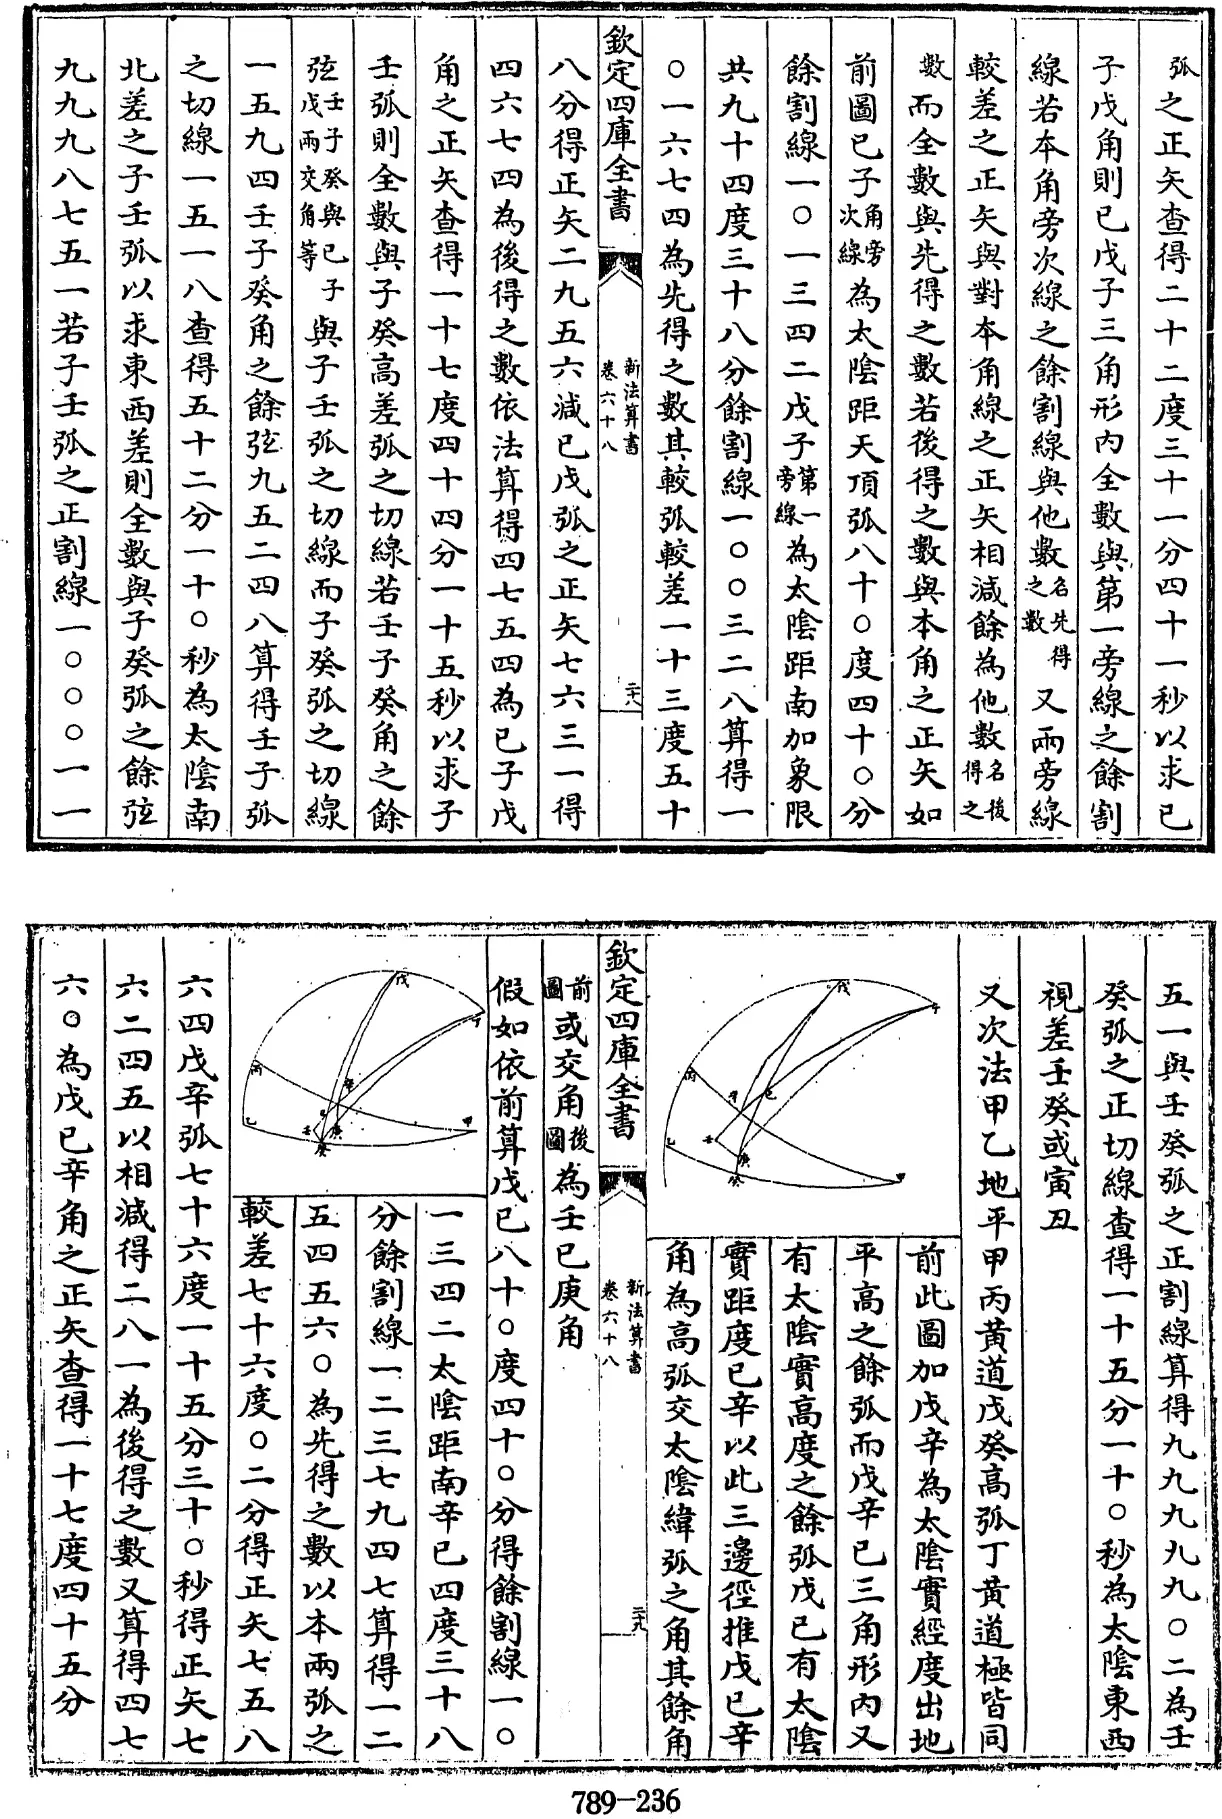 弧之正矢查得二十二度三十一分四十一秒以求已
子戊角則已戊子三角形内全數與第一旁線之餘割
線若本角旁次線之餘割線與他數名先得之數又兩旁線
較差之正矢與對本角線之正矢相減餘為他數名後得之
數而全數與先得之數若後得之數與本角之正矢如
前圖已子角旁次線為太陰距天頂弧八十○度四十○分
餘割線一○一三四二戊子第一旁線為太陰距南加象限
共九十四度三十八分餘割線一○○三二八算得一
○一六七四為先得之數其較弧較差一十三度五十
欽定四庫全書
新法算書
卷六十八
二十八
八分得正矢二九五六減已戊弧之正矢七六三一得
四六七四為後得之數依法算得四七五四為已子戊
角之正矢查得一十七度四十四分一十五秒以求子
壬弧則全數與子癸高差弧之切線若壬子癸角之餘
弦壬子癸與已子戊兩交角等與子壬弧之切線而子癸弧之切線
一五九四壬子癸角之餘弦九五二四八算得壬子弧
之切線一五一八查得五十二分一十○秒為太陰南
北差之子壬弧以求東西差則全數與子癸弧之餘弦
九九九八七五一若子壬弧之正割線一○○○一一
五一與壬癸弧之正割線算得九九九九九○二為壬
癸弧之正切線查得一十五分一十○秒為太陰東西
視差壬癸或寅丑
又次法甲乙地平甲丙黃道戊癸高弧丁黃道極皆同
前此圖加戊辛為太陰實經度出地
平高之餘弧而戊辛已三角形内又
有太陰實高度之餘弧戊已有太陰
實距度已辛以此三邊徑推戊已辛
角為高弧交太陰緯弧之角其餘角
欽定四庫全書
新法算書
卷六十八
二十九
前圖或交角後圖為壬已庚角
假如依前算戊已八十○度四十○分得餘割線一○
一三四二太陰距南辛已四度三十八
分餘割線一二三七九四七算得一二
五四五六○為先得之數以本兩弧之
較差七十六度○二分得正矢七五八
六四戊辛弧七十六度一十五分三十○秒得正矢七
六二四五以相減得二八一為後得之數又算得四七
六○為戊已辛角之正矢查得一十七度四十五分
789-236